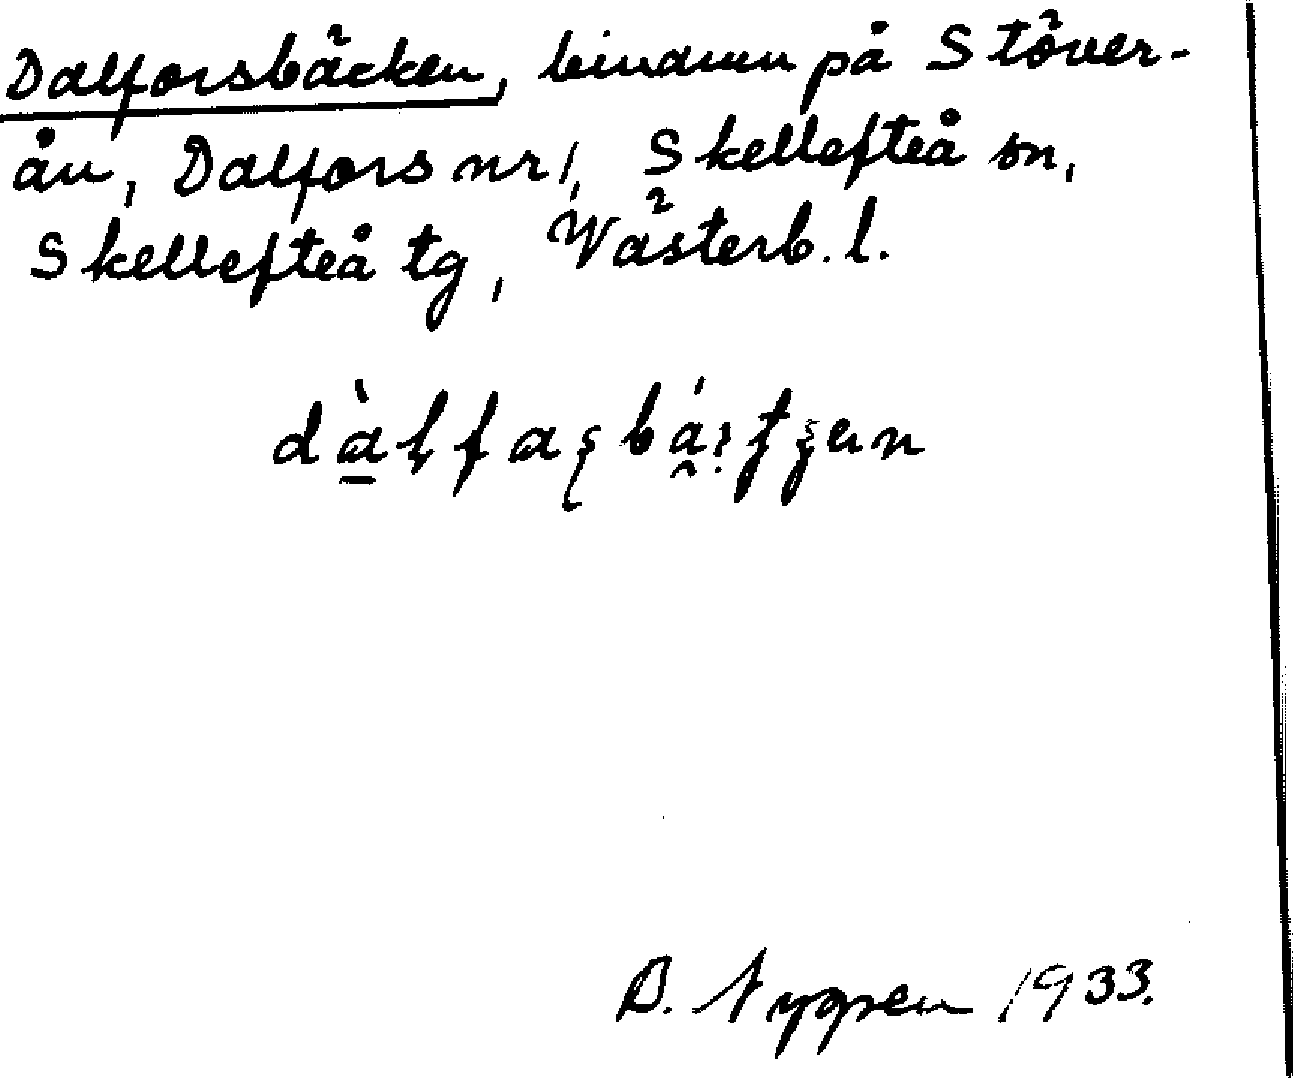 Dalforsbäcken, binamn på Stöver-
ån, Dalfors nr 1, Skellefteå sn,
Skellefteå tg, Västerb. l.
D. Nygren 1933.